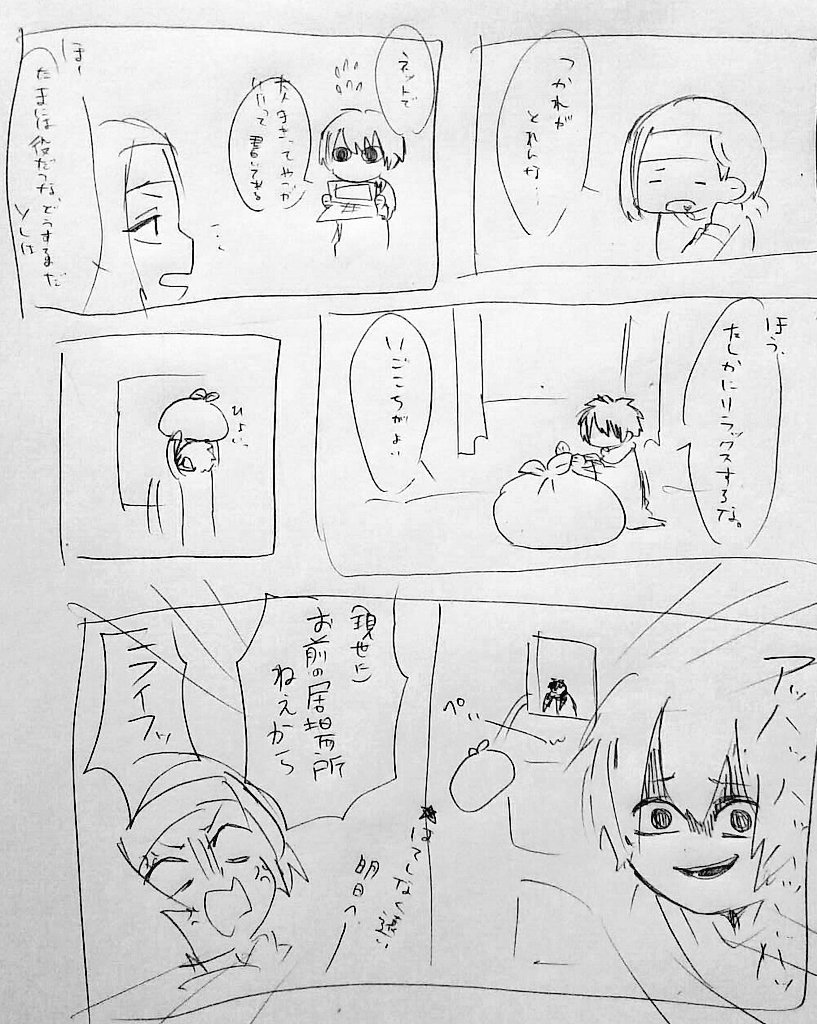 つかれが
とれんな…
ネットで
って書いてある
ほー
たまには役だつな、どうするんだ
ほう、
たしかにリラックスするな。
いごこちがよい
ひょいっ
アッハッハッハッハッハッ
ぺいっ
はてしなく遠い
明日へ
(現世に)
お前の居場所
ねえから
ニライフッ